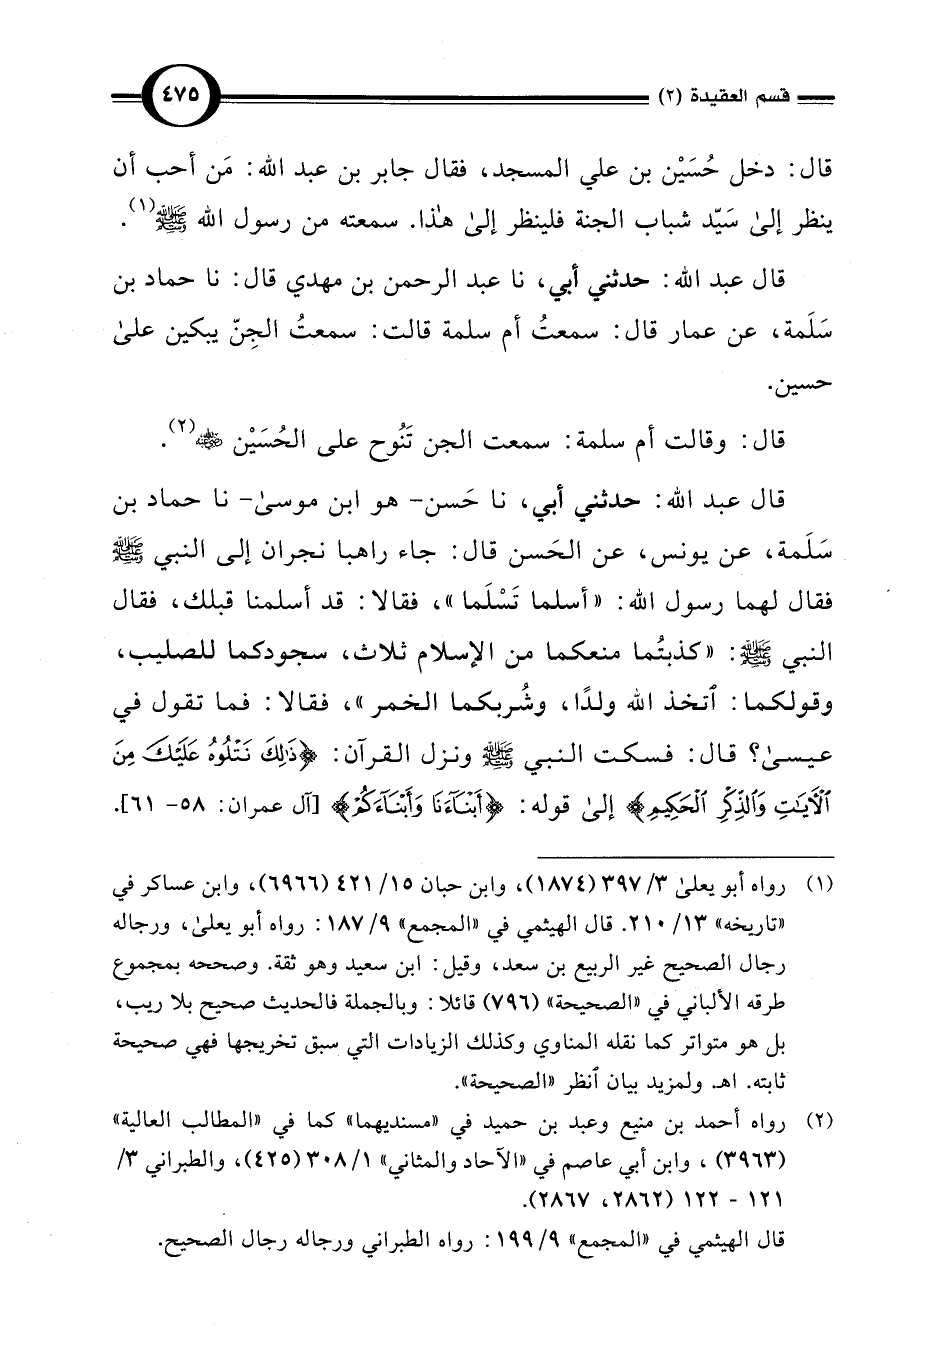 قسم العقيدة (٢) ٤٧٥
قال: دخل حُسَيْن بن علي المسجد، فقال جابر بن عبد الله: مَن أحب أن
ينظر إلىٰ سَيّد شباب الجنة فلينظر إلىٰ هٰذا. سمعته من رسول الله ﷺ(١).
قال عبد الله: حدثني أبي، نا عبد الرحمن بن مهدي قال: نا حماد بن
سَلَمة، عن عمار قال: سمعتُ أم سلمة قالت: سمعتُ الجِنّ يبكين علىٰ
حسين.
قال: وقالت أم سلمة: سمعت الجن تَنُوح على الحُسَيْن رضي الله عنه(٢).
قال عبد الله: حدثني أبي، نا حَسن- هو ابن موسىٰ- نا حماد بن
سَلَمة، عن يونس، عن الحَسن قال: جاء راهبا نجران إلى النبي ﷺ
فقال لهما رسول الله: «أسلما تَسْلَما»، فقالا: قد أسلمنا قبلك، فقال
النبي ﷺ: «كذبتُما منعكما من الإسلام ثلاث، سجودكما للصليب،
وقولكما: ٱتخذ الله ولدًا، وشُربكما الخمر»، فقالا: فما تقول في
عيسىٰ؟ قال: فسكت النبي ﷺ ونزل القرآن: ﴿ذَٰلِكَ نَتْلُوهُ عَلَيْكَ مِنَ
ٱلْآيَٰتِ وَٱلذِّكْرِ ٱلْحَكِيمِ﴾ إلىٰ قوله: ﴿أَبْنَآءَنَا وَأَبْنَآءَكُمْ﴾ [آل عمران: ٥٨- ٦١].
(١) رواه أبو يعلىٰ ٣/ ٣٩٧ (١٨٧٤)، وابن حبان ١٥/ ٤٢١ (٦٩٦٦)، وابن عساكر في
«تاريخه» ١٣/ ٢١٠. قال الهيثمي في «المجمع» ٩/ ١٨٧: رواه أبو يعلىٰ، ورجاله
رجال الصحيح غير الربيع بن سعد، وقيل: ابن سعيد وهو ثقة. وصححه بمجموع
طرقه الألباني في «الصحيحة» (٧٩٦) قائلا: وبالجملة فالحديث صحيح بلا ريب،
بل هو متواتر كما نقله المناوي وكذلك الزيادات التي سبق تخريجها فهي صحيحة
ثابته. اهـ. ولمزيد بيان ٱنظر «الصحيحة».
(٢) رواه أحمد بن منيع وعبد بن حميد في «مسنديهما» كما في «المطالب العالية»
(٣٩٦٣) ، وابن أبي عاصم في «الآحاد والمثاني» ١/ ٣٠٨ (٤٢٥)، والطبراني ٣/
١٢١ - ١٢٢ (٢٨٦٢، ٢٨٦٧).
قال الهيثمي في «المجمع» ٩/ ١٩٩: رواه الطبراني ورجاله رجال الصحيح.